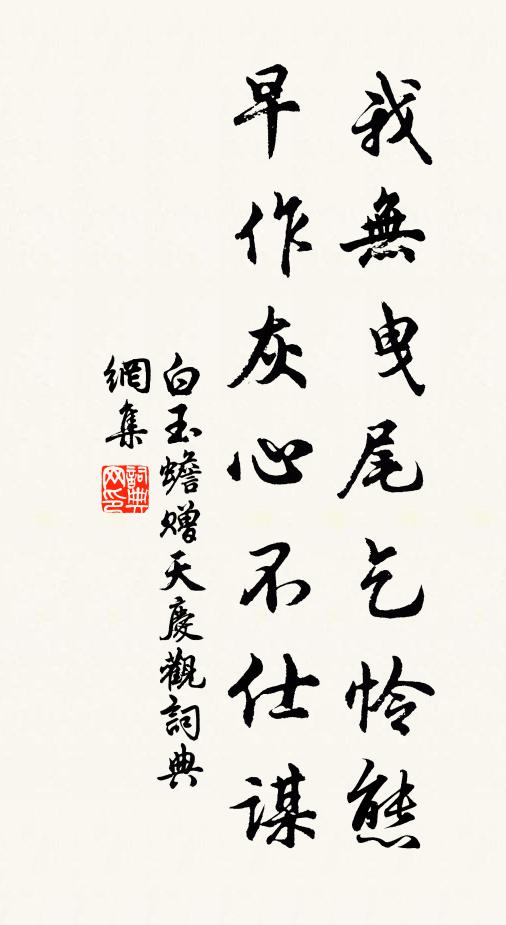 我無曳尾乞怜態
早作灰心不仕謀
白玉蟾贈天慶觀詞典
網集
詞典網印